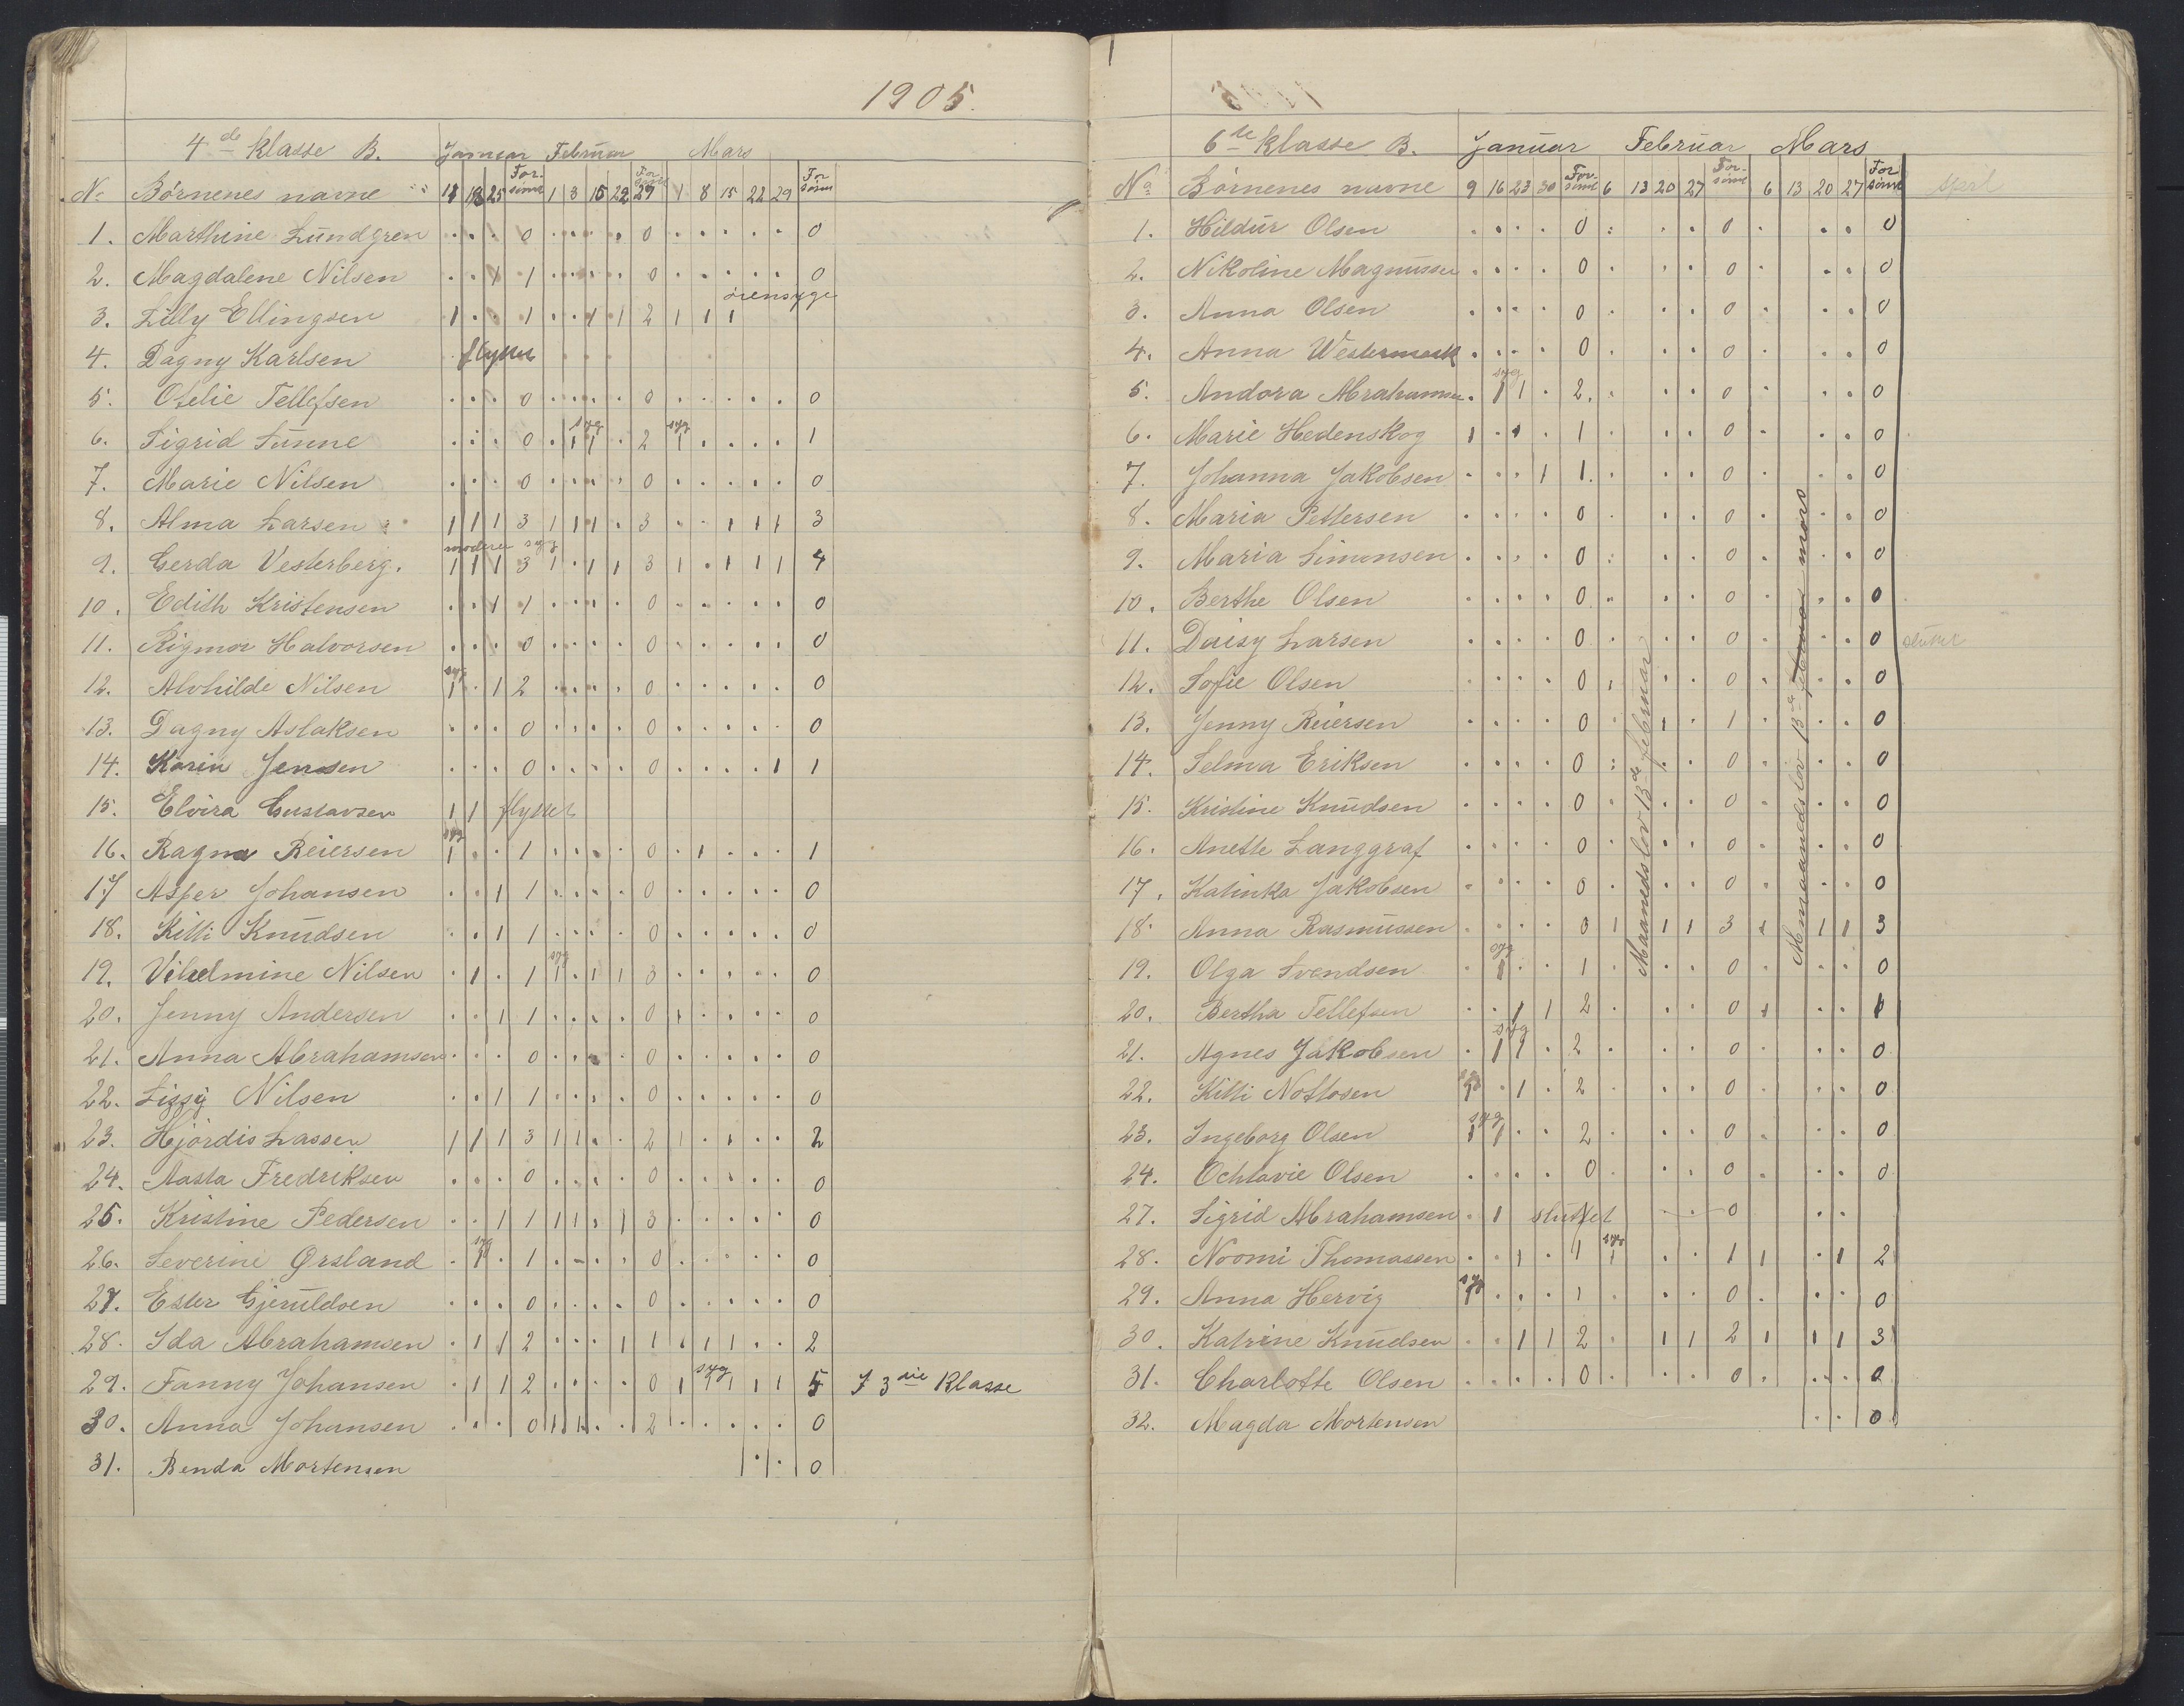 1905.
4de Klasse B. Januar Februar Mars
No Børnenes navne 11 18 25 Forsømt 1 8 15 22 Forsømt 1 8 15 22 29 Forsømt
1. Marthine Lundgren . . . 0 . . . . 0 . . . . . 0
2. Magdalene Nilsen . . 1 1 . . . . 0 . . . . . 0
øiensyge
3. Lilly Ellingsen 1 . . 1 . . 1 1 2 1 1 1
4. Dagny Karlsen . flyttet
5. Ofelie Tellefsen . . . 0 . . . . 0 . . . . . 0
syg syg
6. Sigrid Sunne . . . 0 . 1 1 . 2 1 . . . . 1
7. Marie Nilsen . . . 0 . . . . 0 . . . . . 0
8. Alma Larsen 1 1 1 3 1 1 1 . 3 . . 1 1 1 3
moderen syg
9. Gerda Vesterberg. 1 1 1 3 1 . 1 1 3 1 . 1 1 1 4
10. Edith Kristensen . . 1 1 . . . . 0 . . . . . 0
11. Rigmor Halvorsen . . . 0 . . . . 0 . . . . . 0
syg
12. Alvhilde Nilsen 1 . 1 2 . . . . 0 . . . . . 0
13. Dagny Aslaksen . . . 0 . . . . 0 . . . . . 0
14. Karin Jensen . . . 0 . . . . 0 . . . . 1 1
15. Elvira Gustavsen 1 1 flyttet
syg
16. Ragna Reiersen 1 . . 1 . . . . 0 . 1 . . . 1
17 Asfer Johansen . . 1 1 . . . . 0 . . . . . 0
18. Kitti Knudsen . . 1 1 . . . . 0 . . . . . 0
syg
19. Vilhelmine Nilsen . 1 . 1 1 . 1 1 3 . . . . . 0
20. Jenny Andersen . . 1 1 . . . . 0 1 . . . . 0
21. Anna Abrahamsen . . . 0 . . . . 0 . . . . . 0
22. Lissy Nilsen . . 1 1 . . . . 0 . . . . . 0
23. Hjördis Lassen 1 1 1 3 1 1 . . 2 1 . 1 . . 2
24. Aasta Fredriksen . . . 0 . . . . 0 . . . . . 0
25. Kristine Pedersen . . 1 1 1 1 . 1 3 . . . . . 0
syg
26. Severine Ørsland . 1 . 1 . . . . 0 . . . . . 0
27. Ester Gjeruldsen . . . 0 . . . . 0 . . . . . 0
28. Ida Abrahamsen . 1 1 2 . . . 1 1 . 1 1 . . 2
syg
29. Fanny Johansen . 1 1 2 . . . . 0 1 1 1 1 1 5 I 3die Klasse
30. Anna Johansen . . . 0 1 1 . . 2 . . . . . 0
31. Benda Mortensen . . 0
6te Klasse B. Januar Februar Mars
No Børnenes navne 9 16 23 30 Forsømt 6 13 20 27 Forsømt 6 13 20 27 Forsømt April
1. Hildur Olsen . . . . 0 . . . 0 . . . 0
2. Nikoline Magnussen . . . . 0 . . . 0 . . . 0
3. Anna Olsen . . . . 0 . . . 0 . . . 0
4. Anna Westermark . . . . 0 . . . 0 . . . 0
syg
5. Andora Abrahamsen . 1 1 . 2 . . . 0 . . 0
6. Marie Hedenskog 1 . . . 1 . . . 0 . . . 0
7. Johanna Jakobsen . . . 1 1 . . . 0 . . . 0
8. Maria Pettersen . . . . 0 . . . 0 . . . 0
9. Maria Simonsen . . . . 0 . . . 0 . . . 0
10. Berthe Olsen . . . . 0 . . . 0 . . . 0
11. Daisy Larsen . . . . 0 . . . 0 . . . 0 sluttet
12. Sofie Olsen . . . . 0 . . . 0 . . . 0
13. Jenny Reiersen . . . . 0 . 1 . 1 . . . 0
14. Selma Eriksen . . . . 0 . . . 0 . . . 0
15. Kristine Knudsen . . . . 0 . . . 0 . . . 0
16. Anette Langgraf . . . . 0 . . . 0 . . . 0
17. Katinka Jakobsen . . . . 0 . . . 0 . . . 0
18. Anna Rasmussen . . . . 0 1 1 1 3 1 1 1 3
syg
19. Olga Svendsen . 1 . . 1 . . . 0 . . . 0
20. Bertha Tellefsen . . 1 1 2 . . . 0 1 . . 1
syg
21. Agnes Jakobsen . 1 1 . 2 . . . 0 . . . 0
syg
22. Kitti Nottosen 1 . 1 . 2 . . . 0 . . . 0
syg
23. Ingeborg Olsen 1 1 . . 2 . . . 0 . . . 0
24. Ochtavie Olsen . . . . 0 . . . 0 . . . 0
27. Sigrid Abrahamsen . 1 sluttet . . 0 . .
syg
28. Noomi Thomassen . . 1 . 1 1 . . 1 1 . 1 2
syg
29. Anna Hervig 1 . . . 1 . . . 0 . . . 0
30. Katrine Knudsen . . 1 1 2 . 1 1 2 1 1 1 3
31. Charlotte Olsen . . . . 0 . . . 0 . . . 0
32. Magda Mortensen . . 0
Maanedslov 13de februar
Maanedslov 13de februar mars